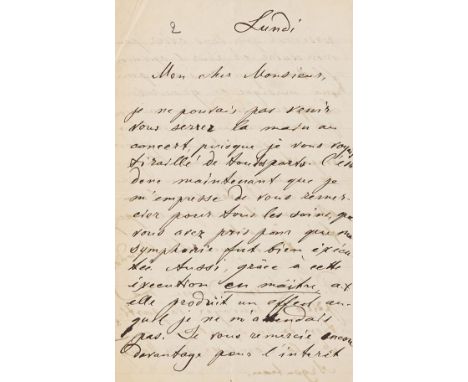 2
Lundi
Mon cher Monsieur,
je ne pouvais pas venir
vous serrer la main au
concert, puisque je vous voyais
tiraillé de toutsparts. C'est
donc maintenant que je
m'empresse de vous remer-
cier pour tous les soins, que
vous avez pris pour que ma
symphonie fut bien exécu-
tée. Aussi, grâce à cette
éxecution en maître, a t
elle produit un effect au-
quel je ne m'attendais
pas. Je vous remercie encore
davantage pour l'interêt